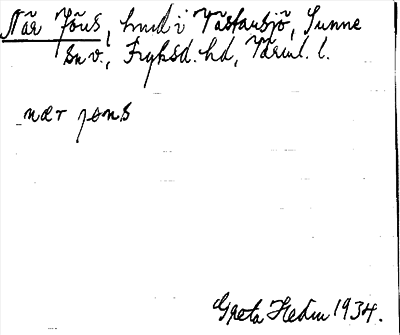 När Jöns, hmd i Västansjö, Sunne
sn v., Fryksd. hd, Värml. l.
nær jons
Greta Hedin 1934.